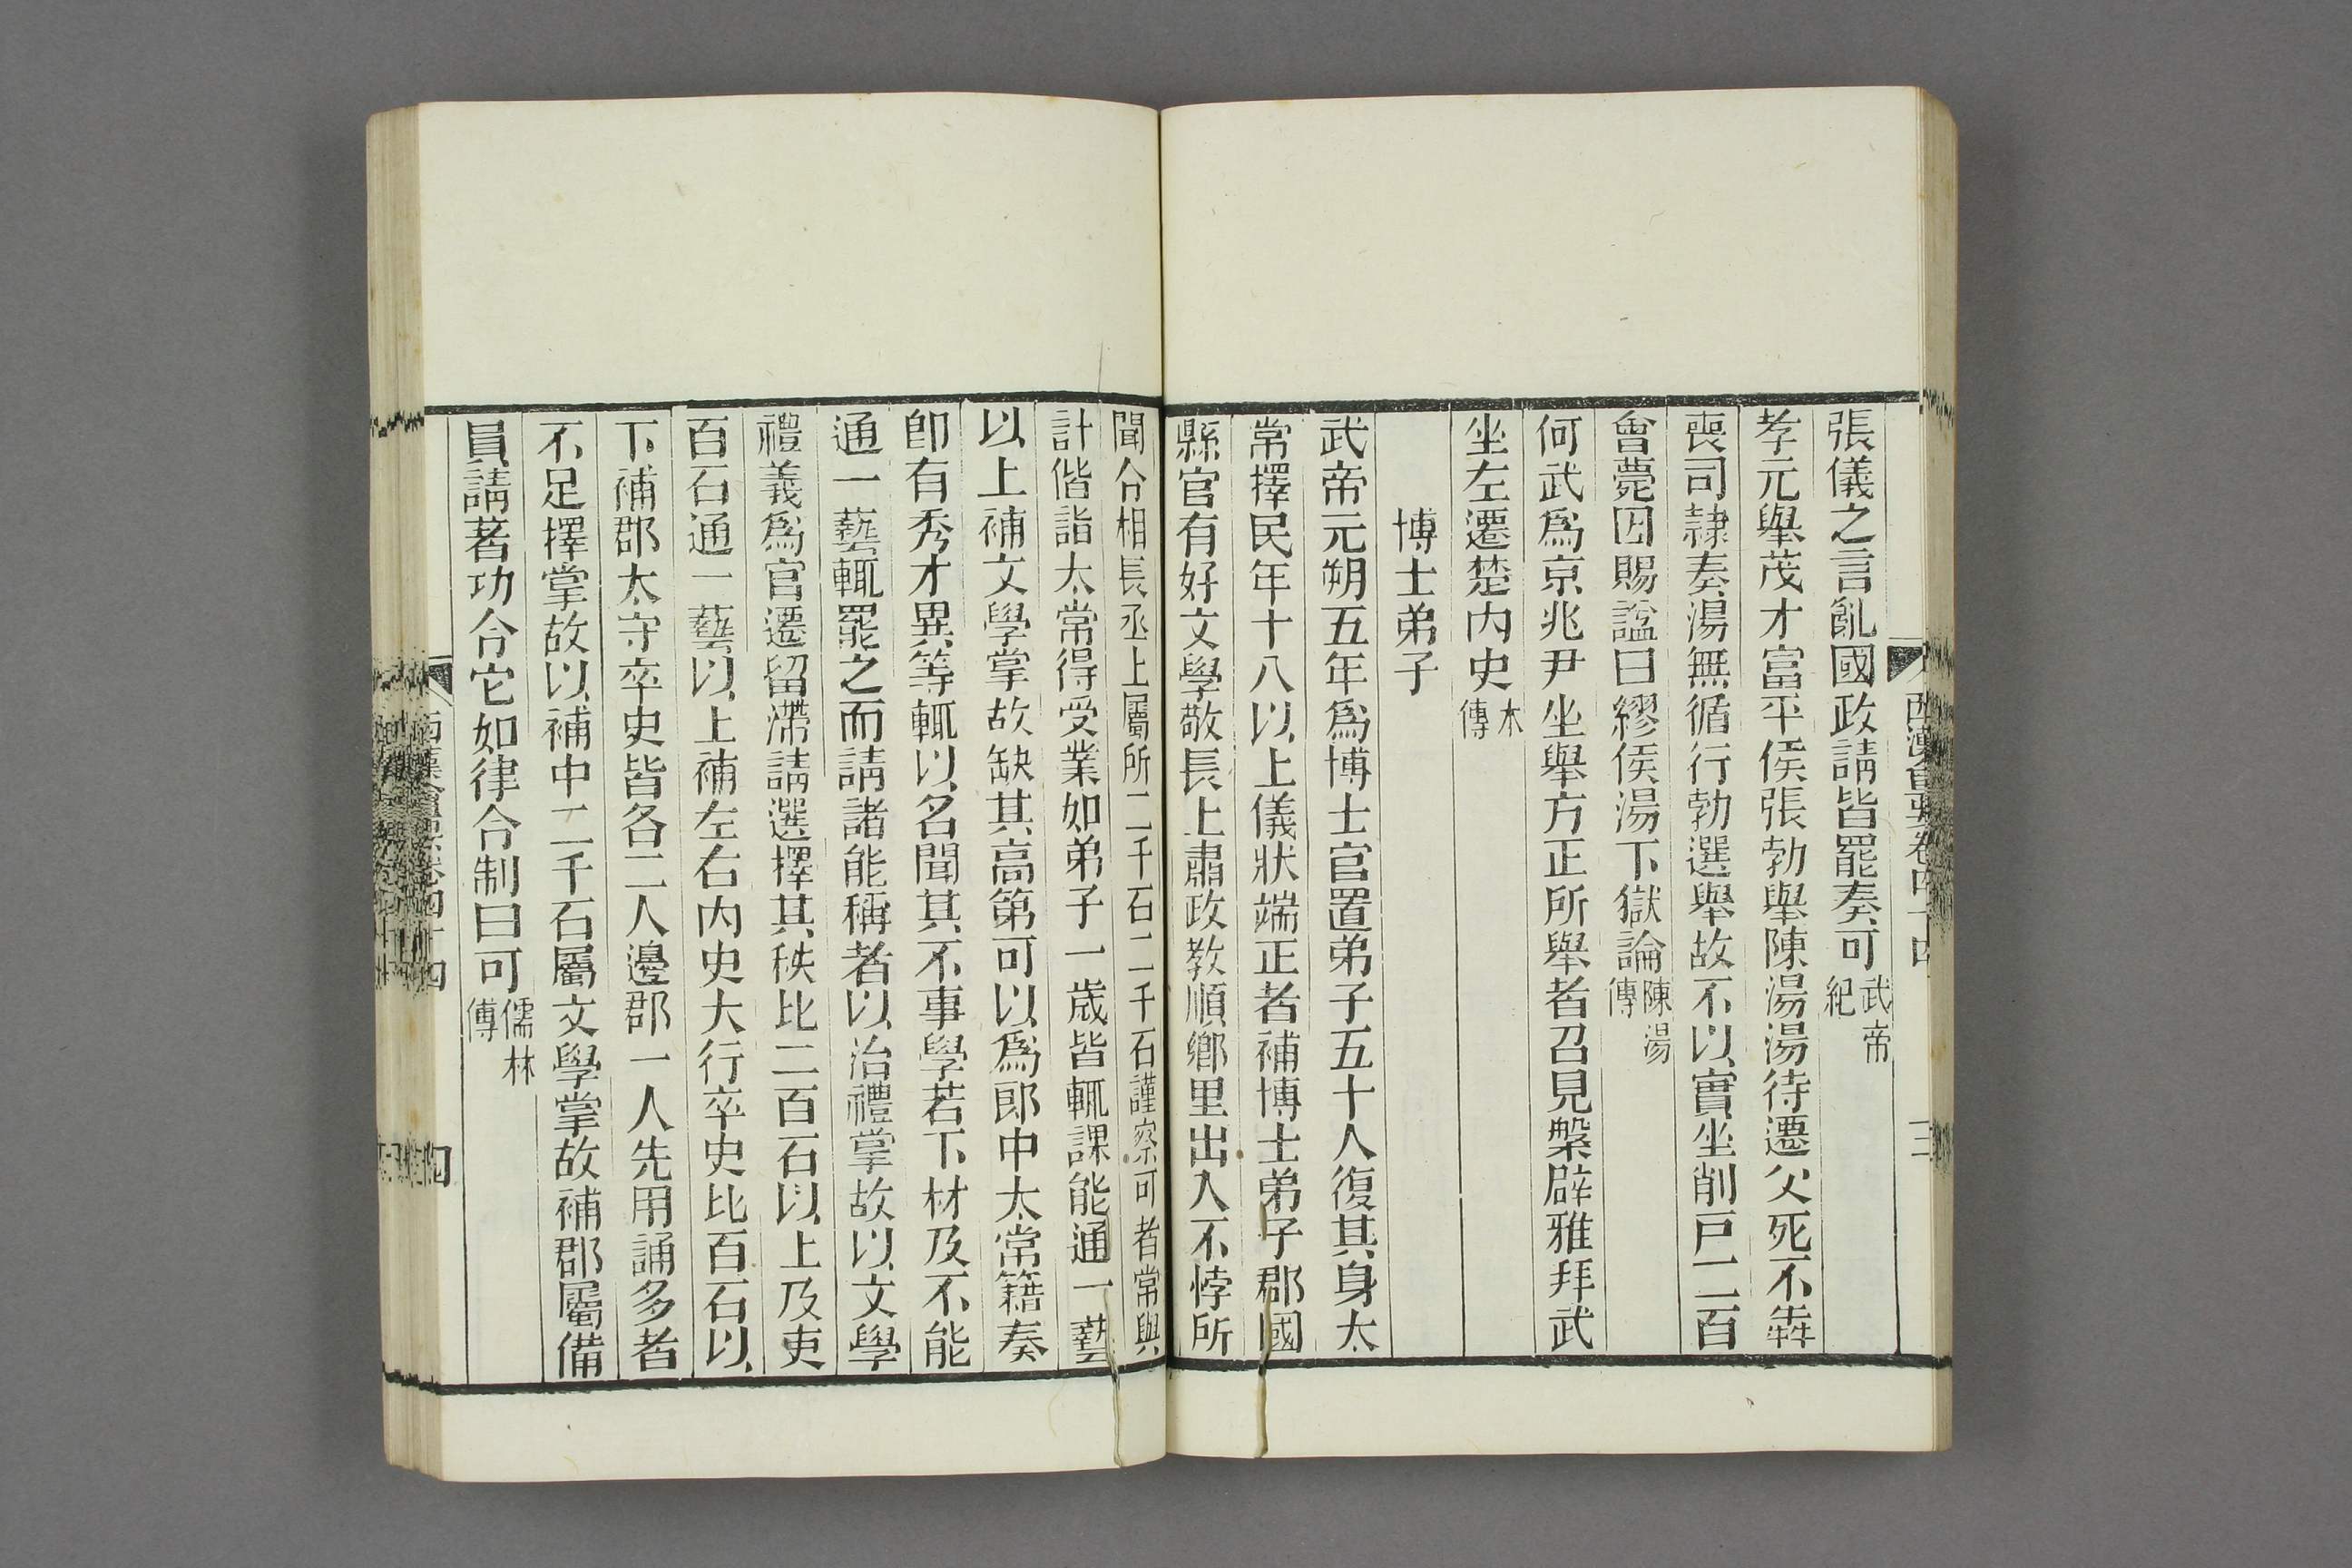 張儀之言亂國政請皆罷奏可武帝紀
孝元舉茂才富平侯張勃舉陳湯湯待遷父死不犇
喪司隷奏湯無循行勃選舉故不以實坐削戸二百
會薨因賜諡曰繆侯湯下獄論陳湯傳
何武爲京兆尹坐舉方正所舉者召見槃辟雅拜武
坐左遷楚内史本傳
博士弟子
武帝元朔五年爲博士官置弟子五十人復其身太
常擇民年十八以上儀狀端正者補博士弟子郡國
縣官有好文學敬長上肅政教順鄉里出入不悖所
聞令相長丞上屬所二千石二千石謹察可者常與
計偕詣太常得受業如弟子一歲皆輒課能通一藝
以上補文學掌故缺其高第可以爲郎中太常籍奏
即有秀才異等輒以名聞其不事學若下材及不能
通一藝輒罷之而請諸能稱者以治禮掌故以文學
禮義爲官遷留滯請選擇其秩比二百石以上及吏
百石通一藝以上補左右内史大行卒史比百石以
下補郡太守卒史皆各二人邊郡一人先用誦多者
不足擇掌故以補中二千石屬文學掌故補郡屬備
員請著功令它如律令制曰可儒林傳
西漢會要卷四十四
三
西漢會要卷四十四
四